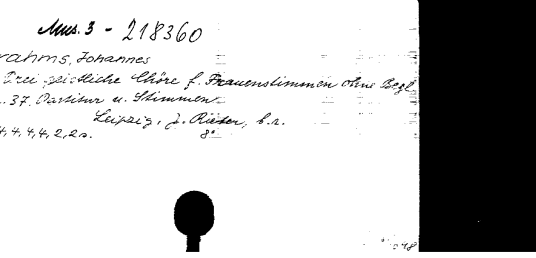 Mus. 3 - 218360
rahms, Johannes
Drei geistliche Chöre f. Frauenstimmen ohne Begl.
. 37. Partitur u. Stimmen.
Leipzig, J. Rieter, b.r.
4, 4, 4, 4, 2, 2 s. 8°